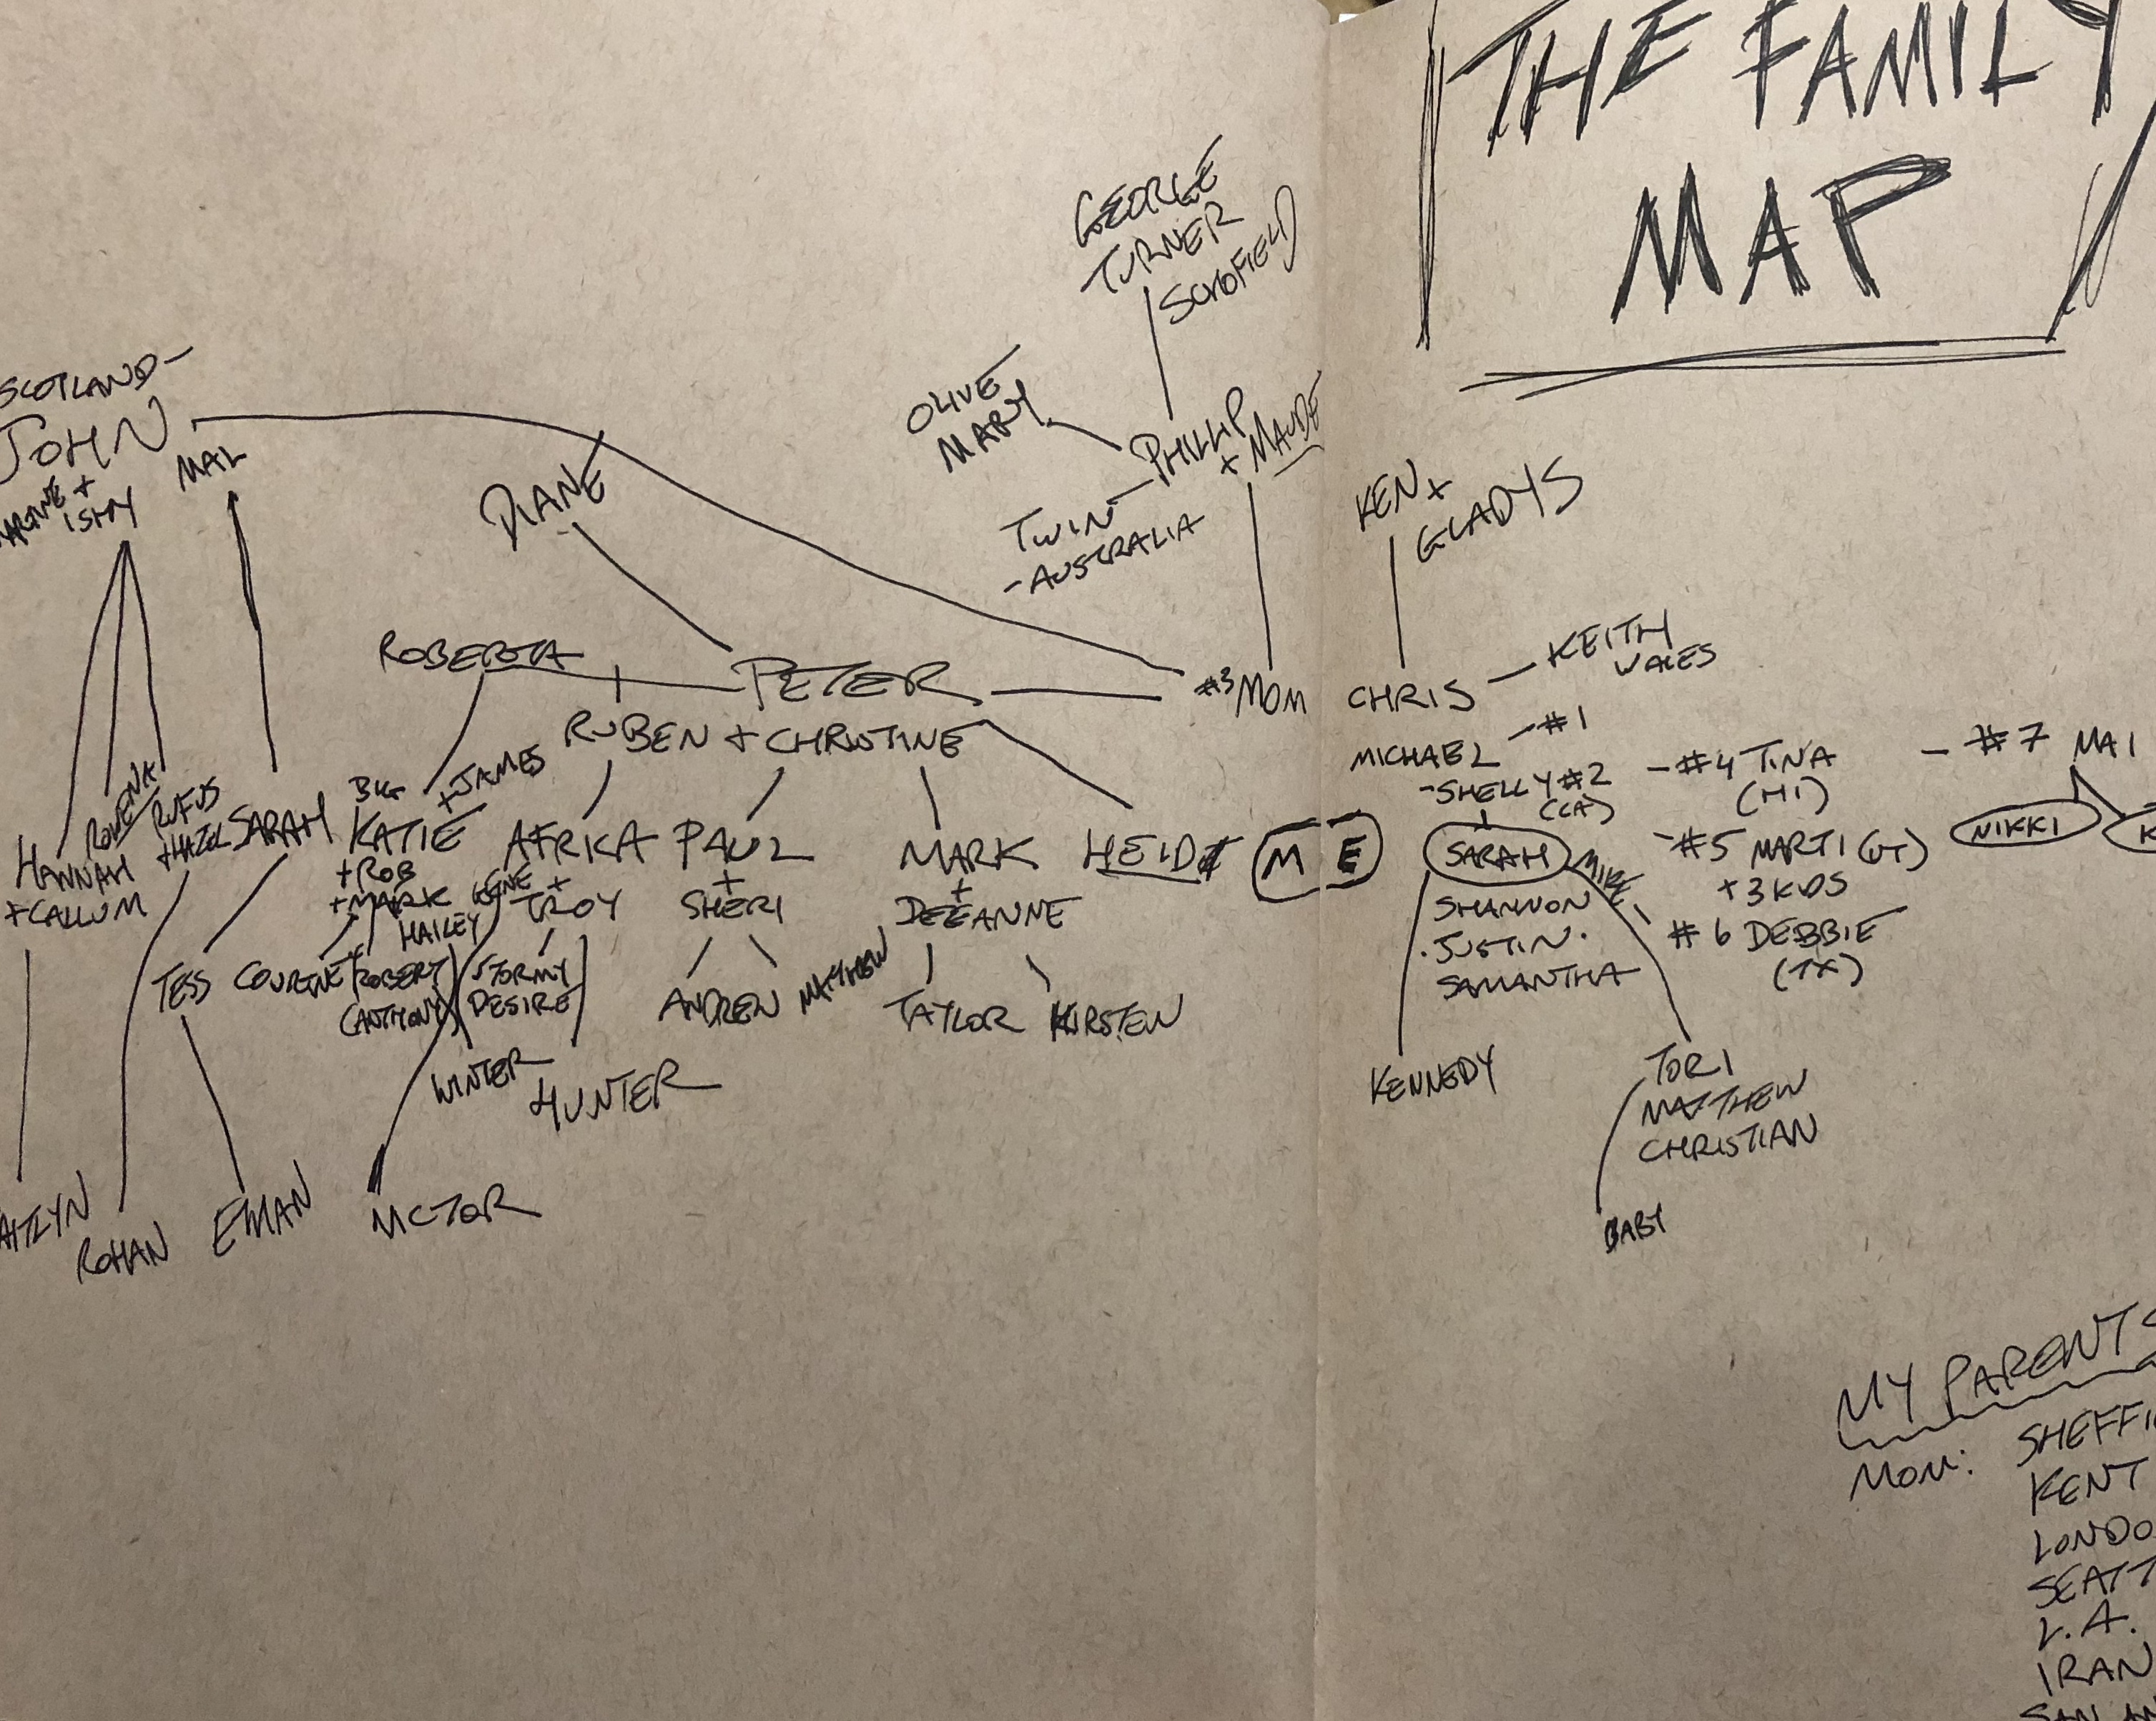 THE FAMILY
MAP
GEORGE
TURNER
SCHOFIELD
OLIVE
MARY
PHILLIP
+ MAUDE
TWIN
-AUSTRALIA
KEN +
GLADYS
SCOTLAND-
JOHN
MAL
+
DIANE
ROBERTA
PETER
#3 MOM
CHRIS
KEITH
WALES
RUBEN + CHRISTINE
MICHAEL
-#1
-SHELLY #2
(CA)
-#4 TINA
(HI)
-#5 MARTI (UT)
+3 KIDS
#6 DEBBIE
(TX)
-#7 MAI
NIKKI
K
HANNAH
+CALLUM
ROWENA
RUFUS
+HAZEL
SARAH
BIG
KATIE
+JAMES
+ROB
+MARK
HAILEY
AFRIKA
GENE +
TROY
PAUL
+
SHERI
MARK
+
DEEANNE
HEIDI
ME
SARAH
MIKE
SHANNON
.JUSTIN.
SAMANTHA
TESS
COURTNEY
ROBERT
(ANTHONY)
STORMY
DESIRE
ANDREW
MATTHEW
TAYLOR
KIRSTEN
WINTER
HUNTER
KENNEDY
TORI
MATTHEW
CHRISTIAN
BABY
AITLYN
ROHAN
EWAN
VICTOR
MY PARENTS
MOM:
SHEFFI
KENT
LONDO
SEATT
L.A.
IRAN
SAN AN